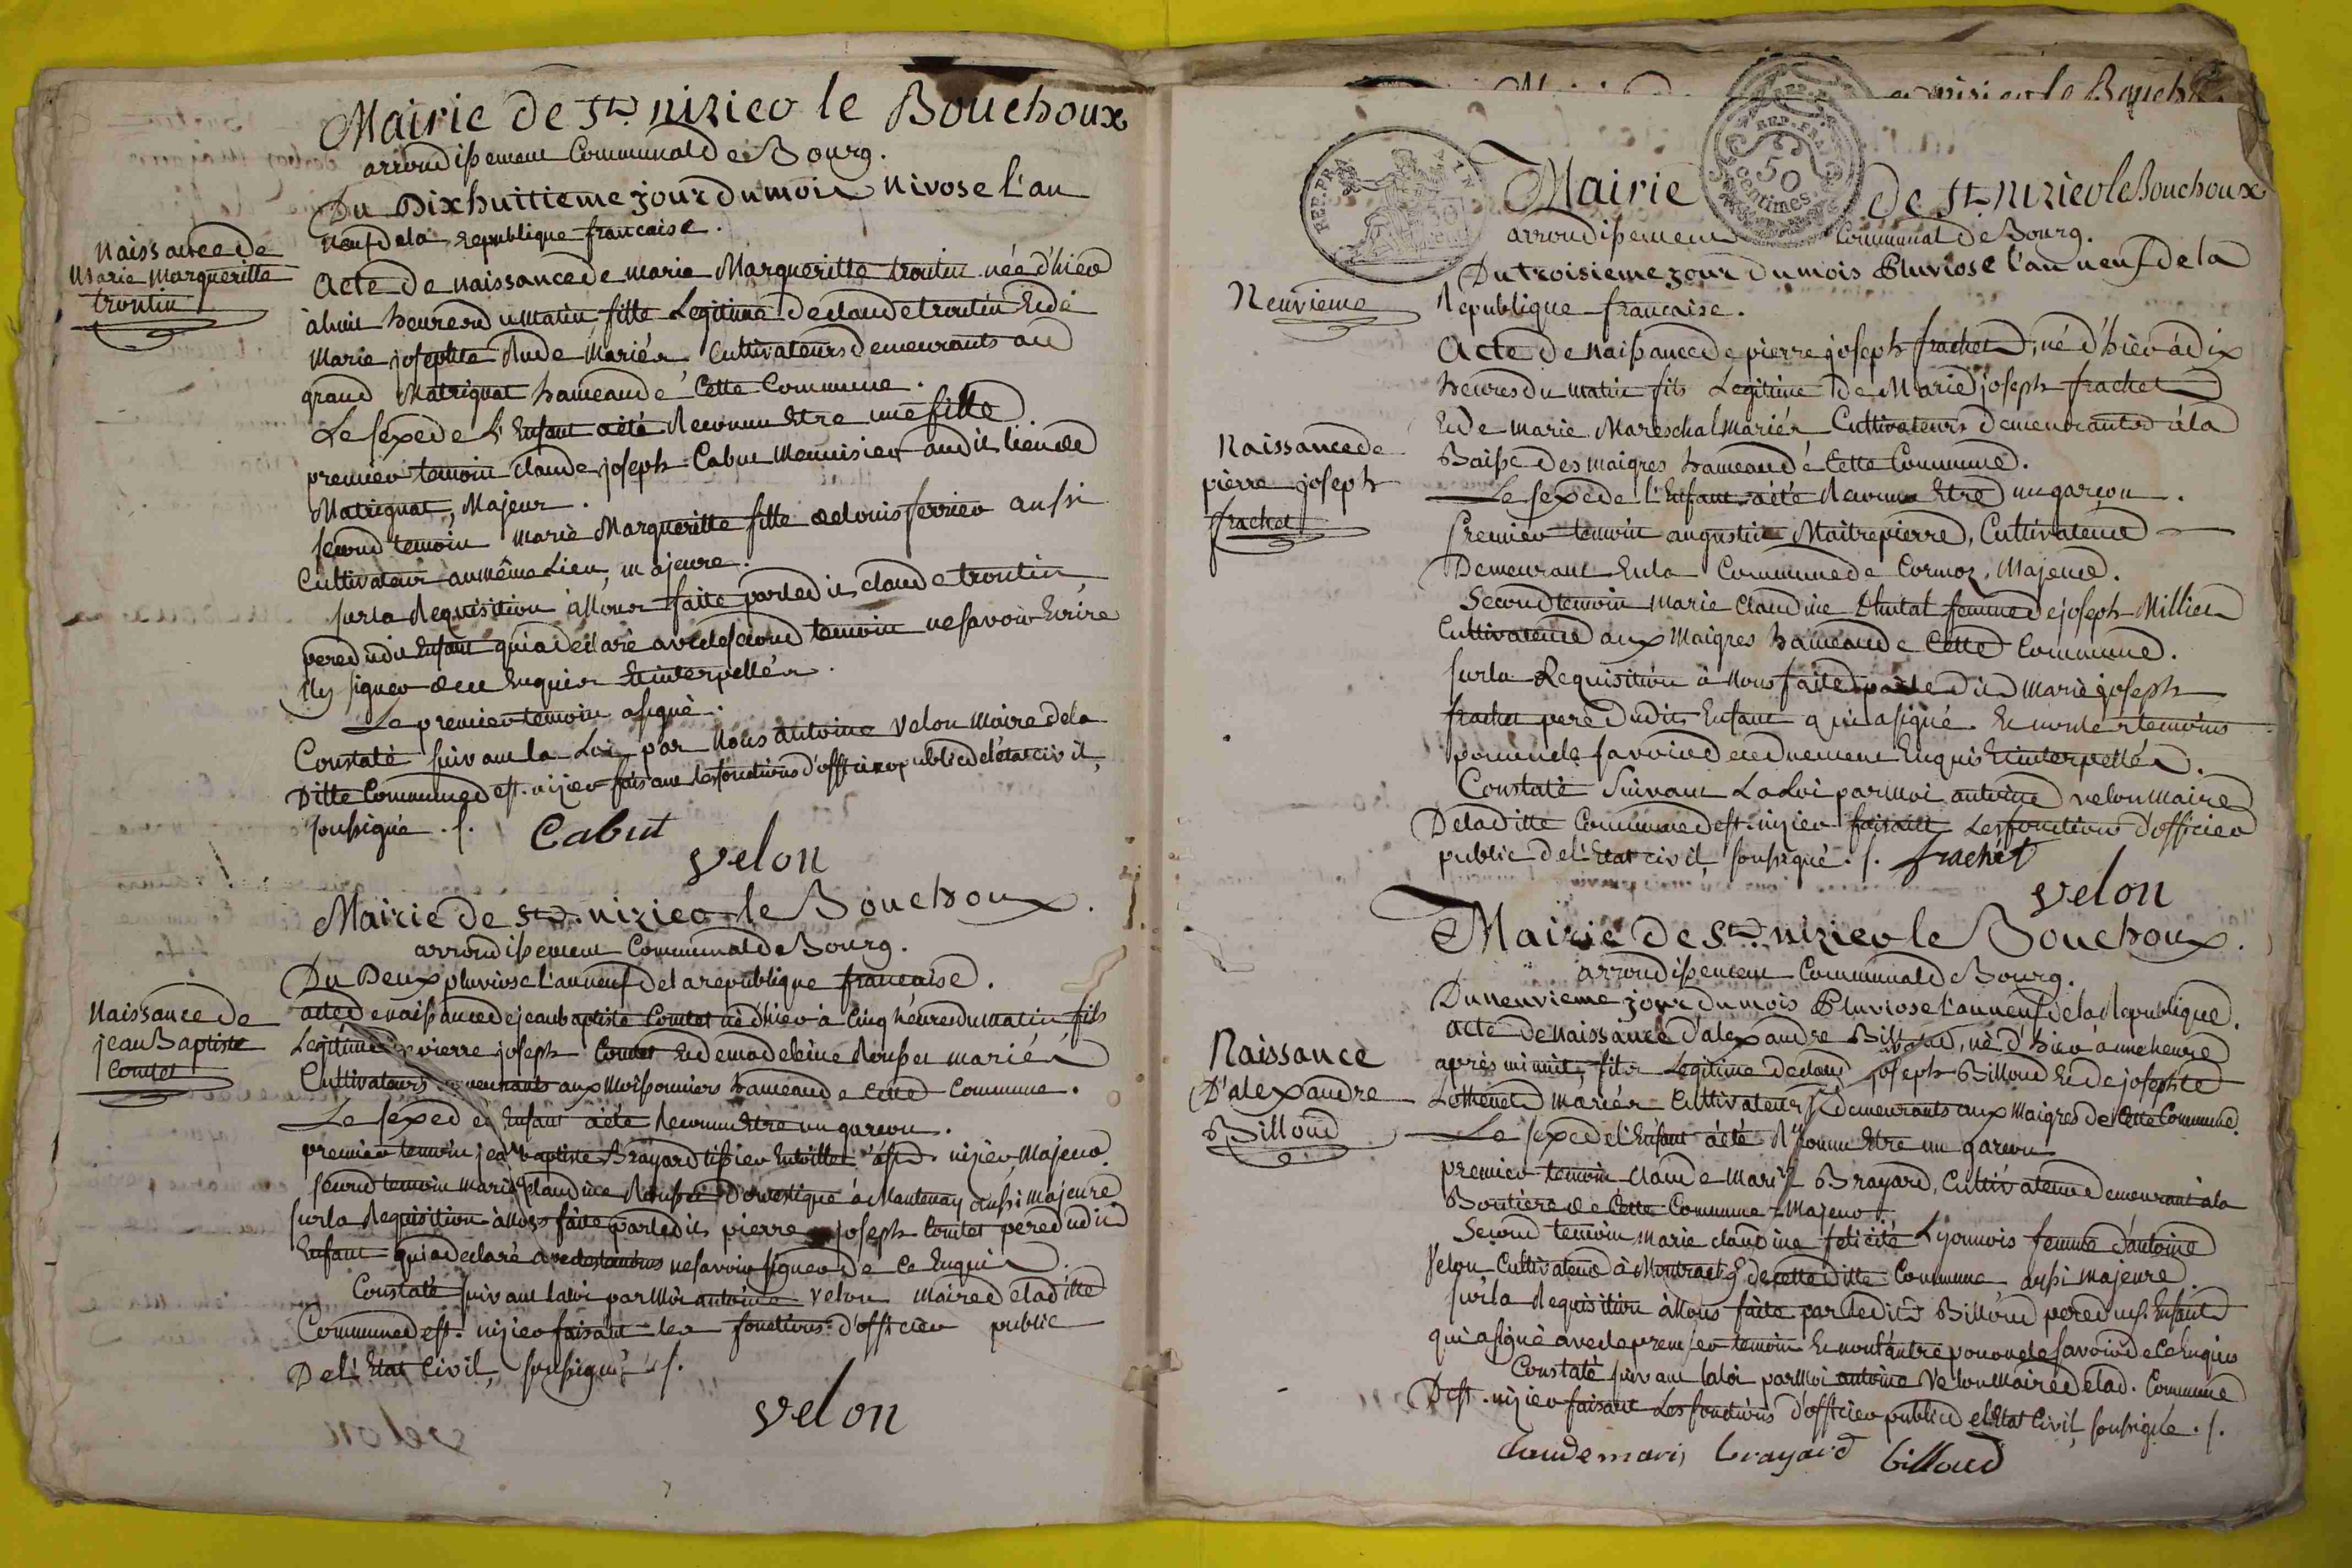 Mairie de St. nizier le Bouchoux
arrondissement Communal de Bourg.
Du Dixhuittieme jour du mois nivose l'an
neuf de la republique francaise.
Naissance de
Marie Margueritte
troutin
Acte de naissance de marie Margueritte troutin née d'hier
à huit heures du matin fille Legitime de claude troutin Et de
Marie josephte Rude Mariés, Cultivateurs demeurants au
grand Matrignat hameau de Cette Commune.
Le sexe de L'Enfant a été Reconnu Etre une fille
premier temoin claude joseph Cabut Menuisier audit lieu de
Matrignat, Majeur.
second temoin marie Margueritte fille de louis ferrier aussi
Cultivateur au même Lieu, majeure.
sur la Requisition à Nous faite par ledit claude troutin,
pere dudit Enfant qui a declaré avec le second temoin ne savoir Ecrire
Ny signer de ce Enquis Et interpellés.
Le premier temoin a signé.
Constaté suivant la Loi par Nous antoine velon Maire de la
Ditte Commune de st. nizier faisant les fonctions d'officier public de l'état civil,
soussigné ./.
Cabut
velon
Mairie de St. nizier le Bouchoux.
arrondissement Communal de Bourg.
Du Deux pluviose l'an neuf de la republique francaise.
Naissance de
jean Baptiste
Comtet
acte de naissance de jean baptiste Comtet né d'hier à Cinq heures du matin fils
Legitime de pierre joseph Comtet Et de madeleine Rousset mariés
Cultivateurs demeurants aux Moissonniers hameau de Cette Commune.
Le sexe de l'Enfant a été Reconnu Etre un garcon.
premier temoin jean baptiste Brayard tissier Entville à st. nizier, Majeur.
second temoin marie Claudine Rousset Domestique à Mantenay aussi majeure
sur la Requisition à Nous faite par ledit pierre joseph Comtet pere dudit
Enfant qui a declaré avec les temoins ne savoir signer De Ce Enquis.
Constaté suivant la loi par Moi antoine velon maire de la ditte
Commune de st. nizier faisant les fonctions d'officier public
De l'Etat Civil, soussigné ./.
velon
REP. FRA.
REP. FRA.
50
centimes
Mairie de St. nizier le Bouchoux
arrondissement Communal de Bourg.
Du troisieme jour du mois Pluviose l'an neuf de la
Republique francaise.
Neuvieme
Naissance de
pierre joseph
frachet
Acte de naissance de pierre joseph frachet, né d'hier à dix
heures du matin fils Legitime de Marie joseph frachet
Et de marie Mareschal mariés Cultivateurs demeurants à la
Baisse des maigres hameau de Cette Commune.
Le sexe de l'Enfant a été Reconnu Etre un garçon.
Premier temoin augustin Maitrepierre, Cultivateur
Demeurant En la Commune de Cormoz, Majeur.
Second temoin marie Claudine femme de joseph Millier
Cultivateur aux Maigres hameau de Cette Commune.
sur la Requisition à Nous faite par le Dit Marie joseph
frachet pere dudit Enfant qui a signé. Et non les temoins
pour ne le savoir de ce duement Enquis Et interpellés.
Constaté Suivant La Loi par Moi antoine velon maire
De la ditte Commune de st. nizier faisant Les fonctions d'officier
public de l'Etat civil, soussigné ./. frachet
velon
Mairie de St. nizier le Bouchoux.
arrondissement Communal de Bourg.
Du neuvieme jour du mois Pluviose l'an neuf de la Republique.
Naissance
D'alexandre
Billoud
Acte de Naissance d'alexandre Billoud, né d'hier à une heure
après minuit, fils Legitime de claude joseph Billoud Et de josephte
Lethenet mariés Cultivateurs demeurants aux Maigres de Cette Commune.
Le sexe de l'Enfant a été Reconnu Etre un garcon
premier temoin claude Marie Brayard, Cultivateur demeurant à la
Boutiere de Cette Commune Majeur.
Second temoin marie claudine felicité Lyonnois femme d'antoine
Velon Cultivateur à de cette ditte Commune aussi majeure.
sur la Requisition à Nous faite par ledit Billoud pere dud. Enfant
qui a signé avec le premier temoin Et non l'autre pour ne le savoir de Ce Enquis
Constaté suivant la loi par Moi antoine Velon Maire de lad. Commune
De st. nizier faisant Les fonctions d'officier public de l'Etat Civil, soussigné ./.
Claude marie brayard billoud